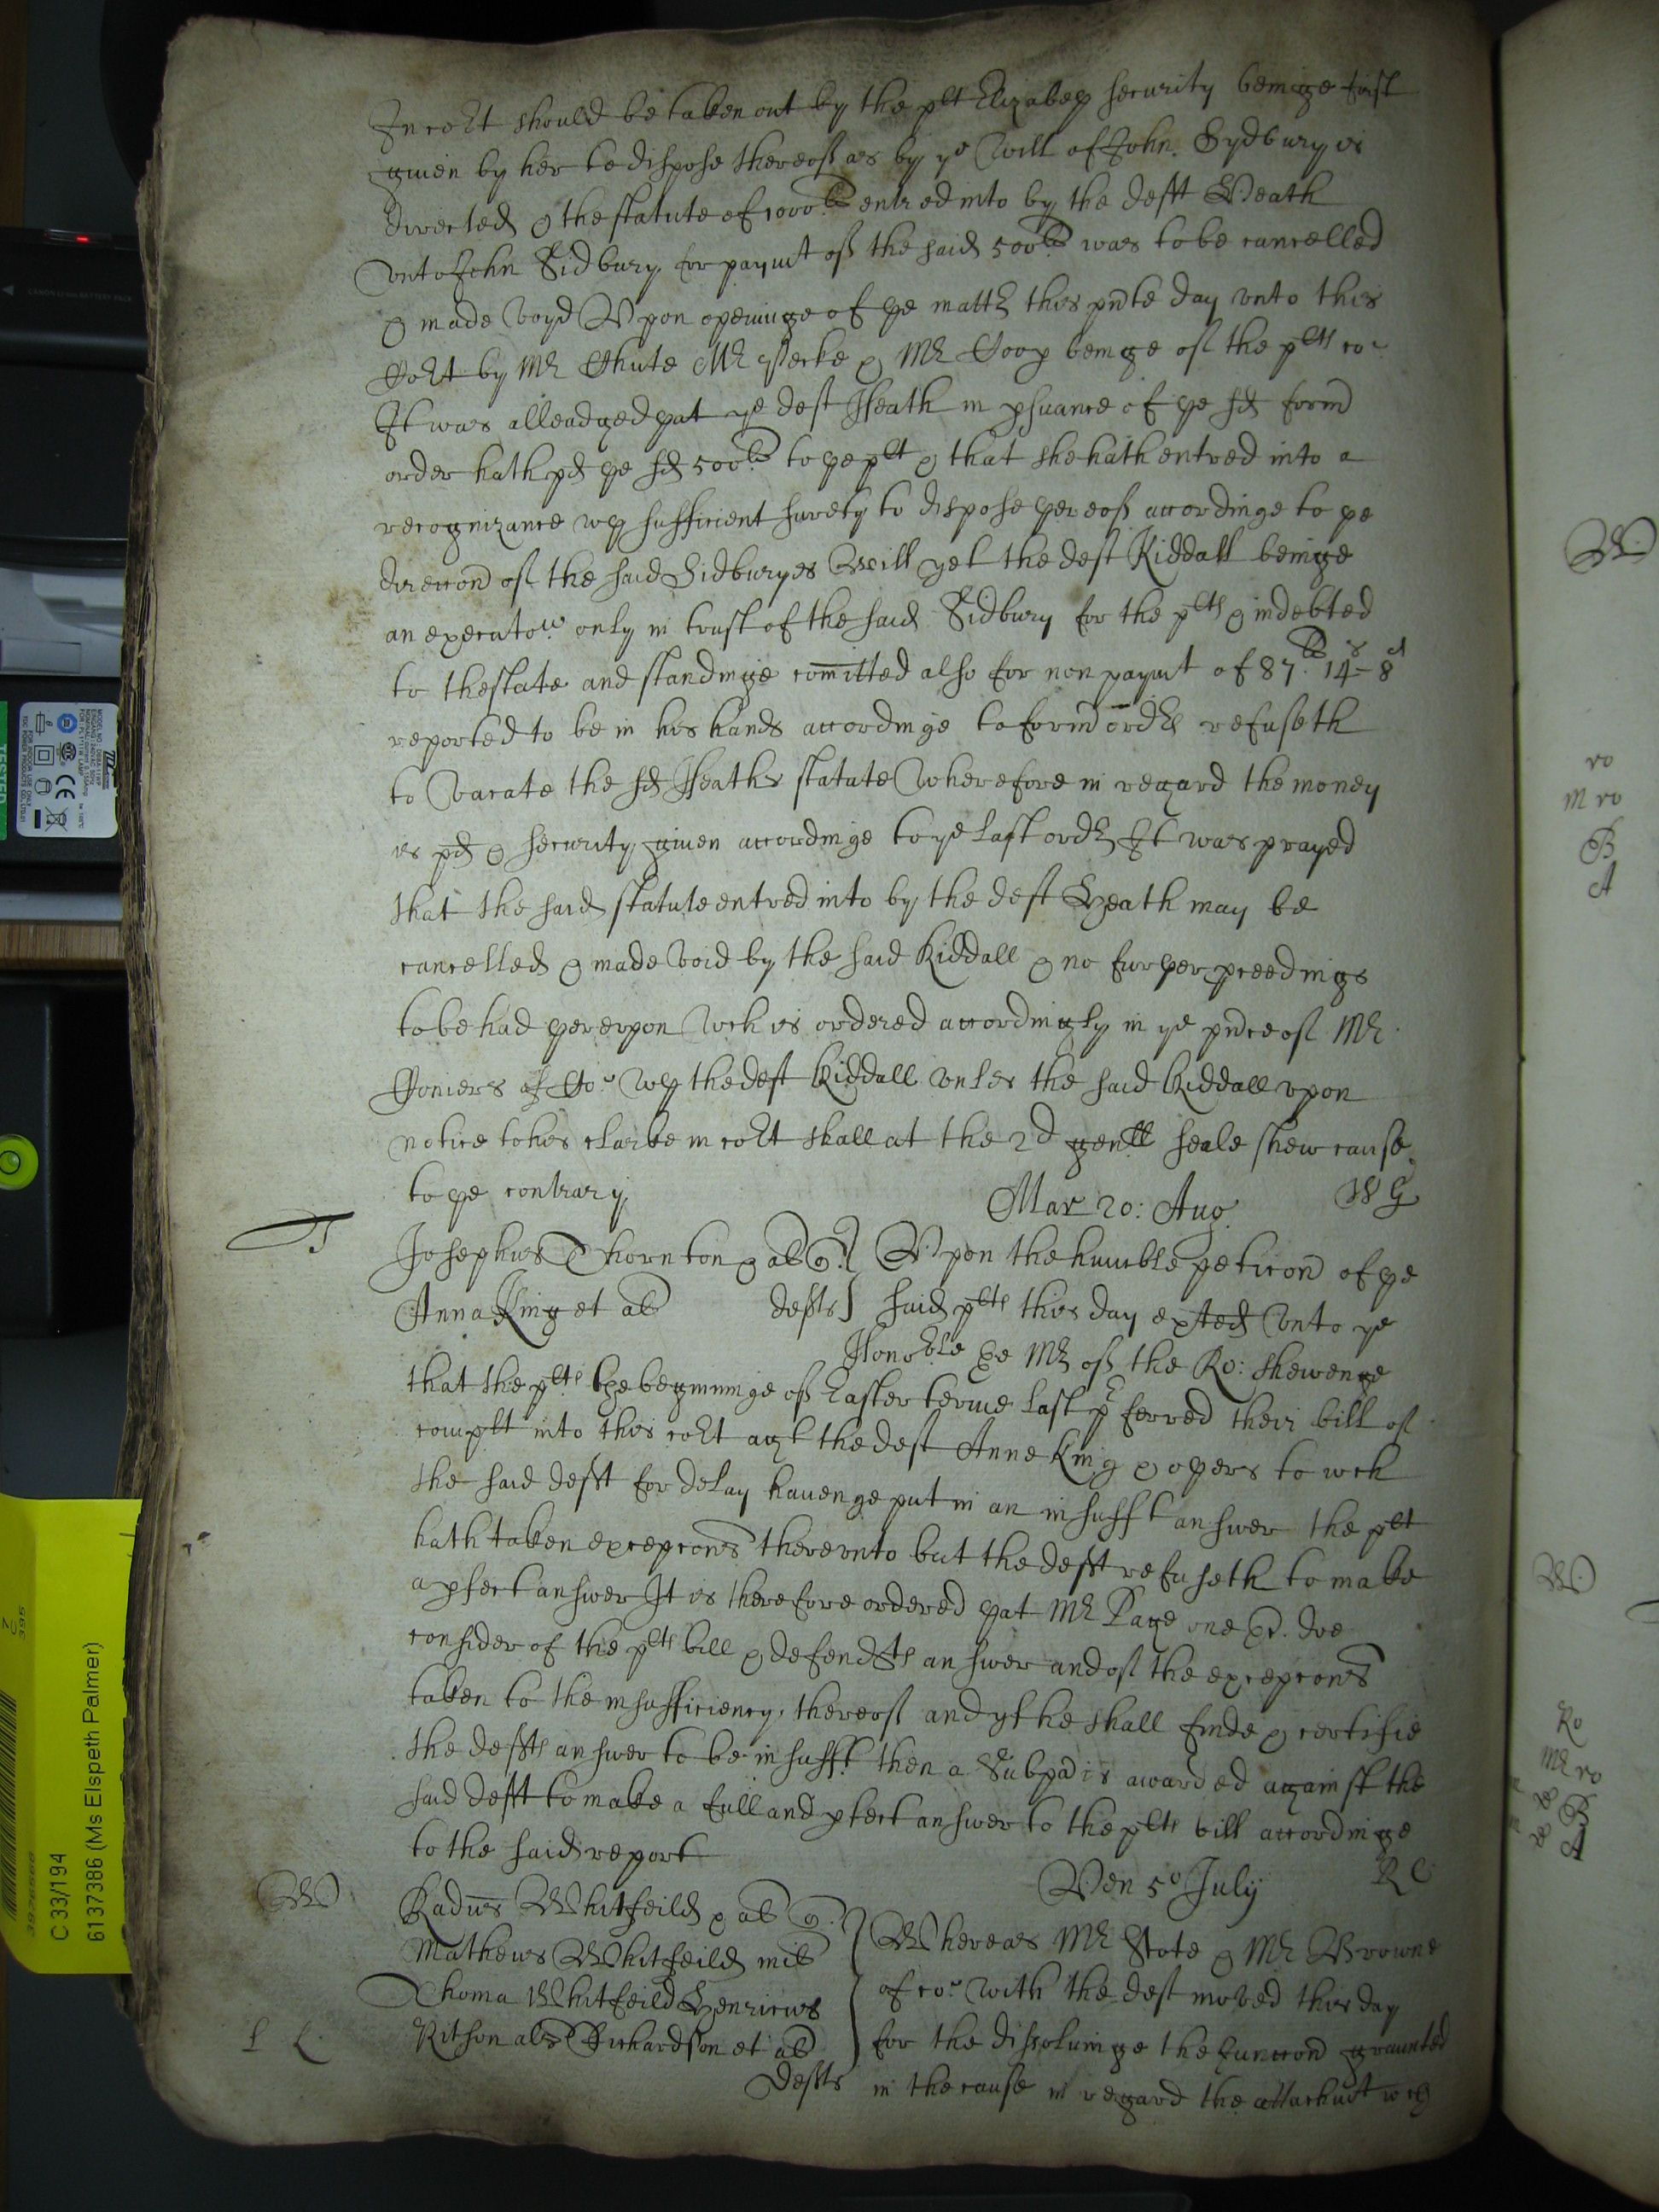 In coꝛt should be taken out by the plt Elizabeþ security beinge first
giuen by her to dispose thereof as by ye Will of John Sydbury is
directed & the statute of 1000li entred into by the deft Heath
vnto John Sidbury for paymt of the said 500li was to be cancelled
& made Voyd Vpon openinge of þe mattr this pñte day vnto this
Coꝛt by Mr Chute Mr Pecke & Mr beinge of the plts co:
It was alleadged þat ye deft Heath in pſuance of þe sd form̃
order hath pd þe sd 500li to þe plt & that she hath entred into a
recognizance wþ sufficient surety to dispose þereof accordinge to þe
direccon̄ of the said Sidburyes Will yet the deft Kiddall beinge
an executor only in trust of the said Sidbury for the plts & indebted
to thestate and standinge com̄itted also for non paymt of 87li 14s– 8d
reported to be in his hands accordinge to form̃ ordrs refuseth
to Vacate the sd Heaths statute Wherefore in regard the money
is pd & security giuen accordinge to ye last ordr It was prayed
that the said statute entred into by the deft Heath may be
cancelled & made Void by the said Kiddall & no furþer pceedings
to be had þerevpon Wch is ordered accordingly in ye pñce of Mr
of Co: wþ the deft Kiddall vnles the said Kiddall vpon
notice to his clarke in coꝛt shall at the 2d genll seale shew cause
to þe contrary
Mar 20: Aug WG
T
Josephus Thornton & al q
Anna King et al defts
Vpon the humble peticon̄ of þe
said plts this day exted Vnto ye
Honoble þe Mr of the Ro: shewenge
that the plts þe beginninge of Easter terme last pferred their bill of
complt into this coꝛt agt the deft Anne King & oþers to wch
the said deft for delay hauenge put in an insufft answer the plt
hath taken excepcons therevnto but the deft refuseth to make
a pfect answer It is therefore ordered þat Mr Page one &c. doe
consider of the plts bill & defendts answer and of the excepcons
taken to the insufficiency thereof and yf he shall finde & certifie
the defts answer to be insufft then a Subpa is awarded against the
said deft to make a full and pfect answer to the plts bill accordinge
to the said report
Ven 5o July RC
W
Radus Whitfeild & al q
Matheus Whitfeild mil
Thoma Whitfeild Henricus
Ritson als Richardson et al
Defts
L L
Whereas Mr Stote & Mr Browne
of co: with the deft moved this day
for the dissoluinge the Iunccon graunted
in the cause in regard the attachmt wch
W
ro
M ro
B
A
W
Ro
Mr ro
B
A
C 33/194
6137386 (Ms Elspeth Palmer)
TESTED